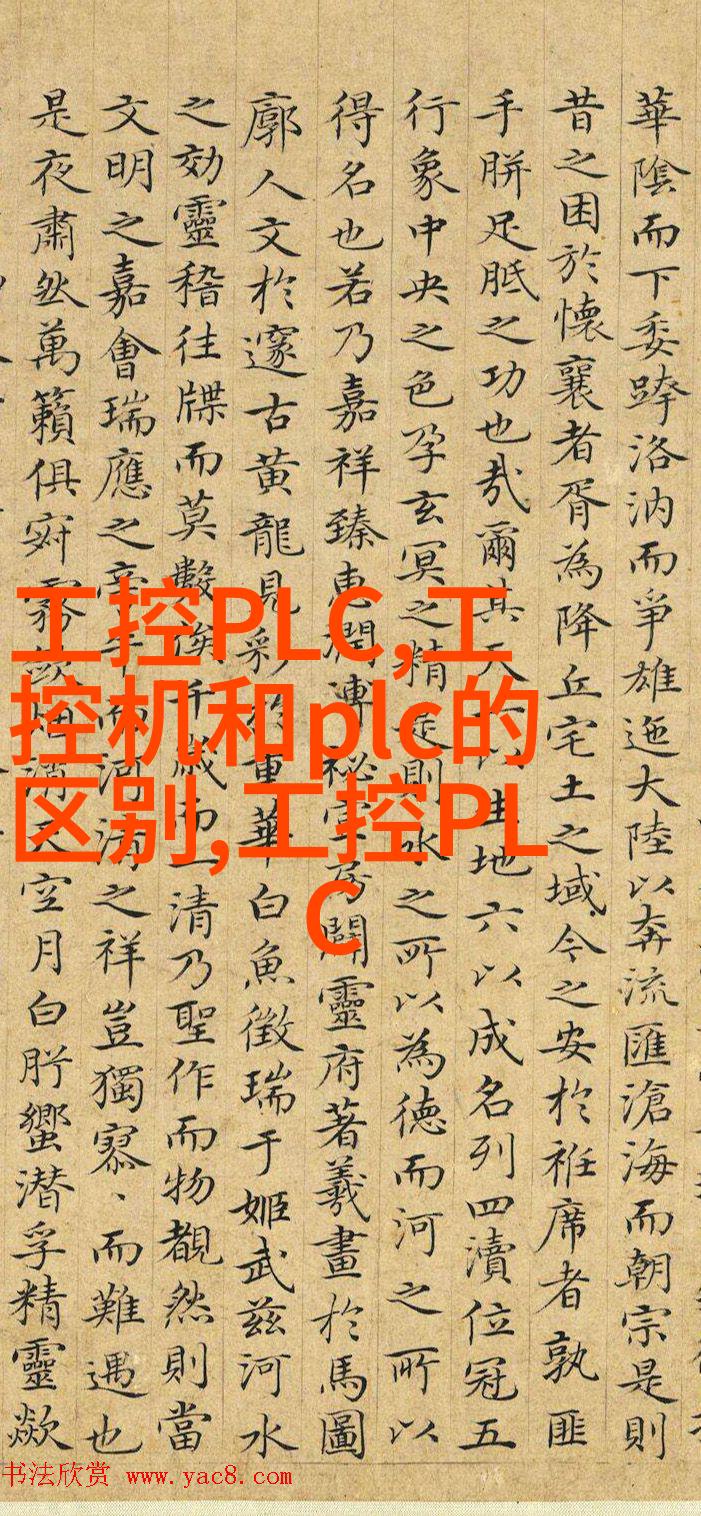 華陰而下委跡洛汭而爭雄迤大陸以奔流匯滄海而朝宗是則
昔之困於懷襄者胥為降丘宅土之域今之安於袵席者孰匪
手胼足胝之功也哉爾其天一以生地六以成名列四瀆位冠五
行象中央之色孕玄冥之精是則水之所以為德而河之所以
得名也若乃嘉祥臻惠潤溥秘雲房闢靈府著羲畫於馬圖
廓人文於邃古黃龍見彩於重華白魚徵瑞于姬武茲河水
之効靈稽往牒而莫數俟千歲而一清乃聖作而物覩然則當
文明之嘉會瑞應之而河清之祥豈獨寡、而難遇也
是夜肅然萬籟俱寂霧斂烟消天空月白肹蠁潛孚精靈歘
工控PLC,工
控机和plc的
区别,工控PL
C
书法欣赏 www.yac8.com